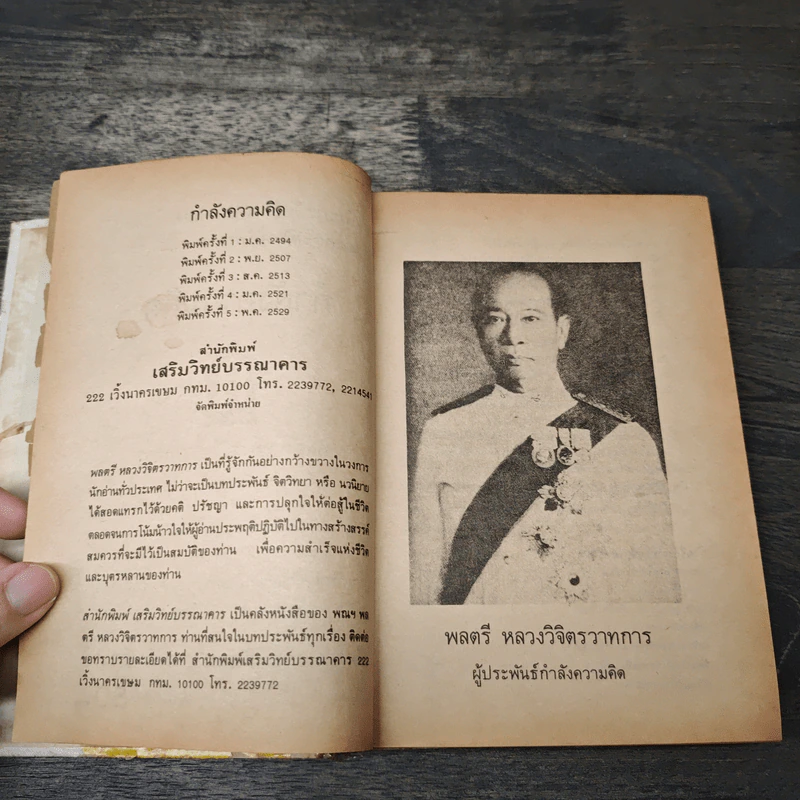 กำลังความคิด
พิมพ์ครั้งที่ 1 : ม.ค. 2494
พิมพ์ครั้งที่ 2 : พ.ย. 2507
พิมพ์ครั้งที่ 3 : ส.ค. 2513
พิมพ์ครั้งที่ 4 : ม.ค. 2521
พิมพ์ครั้งที่ 5 : พ.ค. 2529
สำนักพิมพ์
เสริมวิทย์บรรณาคาร
222 เวิ้งนาครเขษม กทม. 10100 โทร. 2239772, 2214541
จัดพิมพ์จำหน่าย
พลตรี หลวงวิจิตรวาทการ เป็นที่รู้จักกันอย่างกว้างขวางในวงการ
นักอ่านทั่วประเทศ ไม่ว่าจะเป็นบทประพันธ์ จิตวิทยา หรือ นวนิยาย
ได้สอดแทรกไว้ด้วยคติ ปรัชญา และการปลุกใจให้ต่อสู้ในชีวิต
ตลอดจนการโน้มน้าวใจให้ผู้อ่านประพฤติปฏิบัติไปในทางสร้างสรรค์
สมควรที่จะมีไว้เป็นสมบัติของท่าน เพื่อความสำเร็จแห่งชีวิต
และบุตรหลานของท่าน
สำนักพิมพ์ เสริมวิทย์บรรณาคาร เป็นคลังหนังสือของ พณฯ พล
ตรี หลวงวิจิตรวาทการ ท่านที่สนใจในบทประพันธ์ทุกเรื่อง ติดต่อ
ขอทราบรายละเอียดได้ที่ สำนักพิมพ์เสริมวิทย์บรรณาคาร 222
เวิ้งนาครเขษม กทม. 10100 โทร. 2239772
พลตรี หลวงวิจิตรวาทการ
ผู้ประพันธ์กำลังความคิด